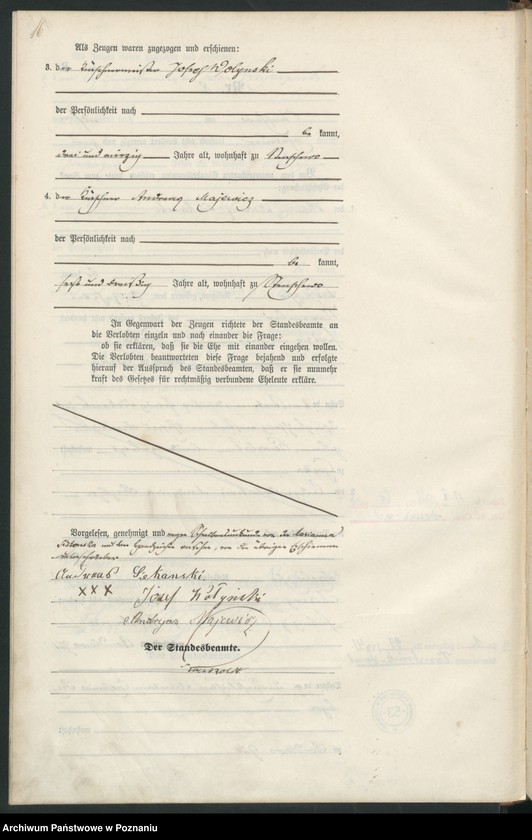 16
Als Zeugen waren zugezogen und erschienen:
3. der Kürschnermeister Josef Wolynski
der Persönlichkeit nach
be kannt,
drei und vierzig Jahre alt, wohnhaft zu
4. der Kürschner Andreas Majewicz
der Persönlichkeit nach
be kannt,
sechs und dreißig Jahre alt, wohnhaft zu
In Gegenwart der Zeugen richtete der Standesbeamte an
die Verlobten einzeln und nach einander die Frage:
ob sie erklären, daß sie die Ehe mit einander eingehen wollen.
Die Verlobten beantworteten diese Frage bejahend und erfolgte
hierauf der Ausspruch des Standesbeamten, daß er sie nunmehr
kraft des Gesetzes für rechtmäßig verbundene Eheleute erkläre.
Vorgelesen, genehmigt und wegen Schreibensunkunde von der Marianna
mit dem Handzeichen versehen, von den übrigen Erschienenen
unterschrieben
Andreas
XXX Józef Wołyński
Andrzej Majewicz
Der Standesbeamte.
Archiwum Państwowe w Poznaniu